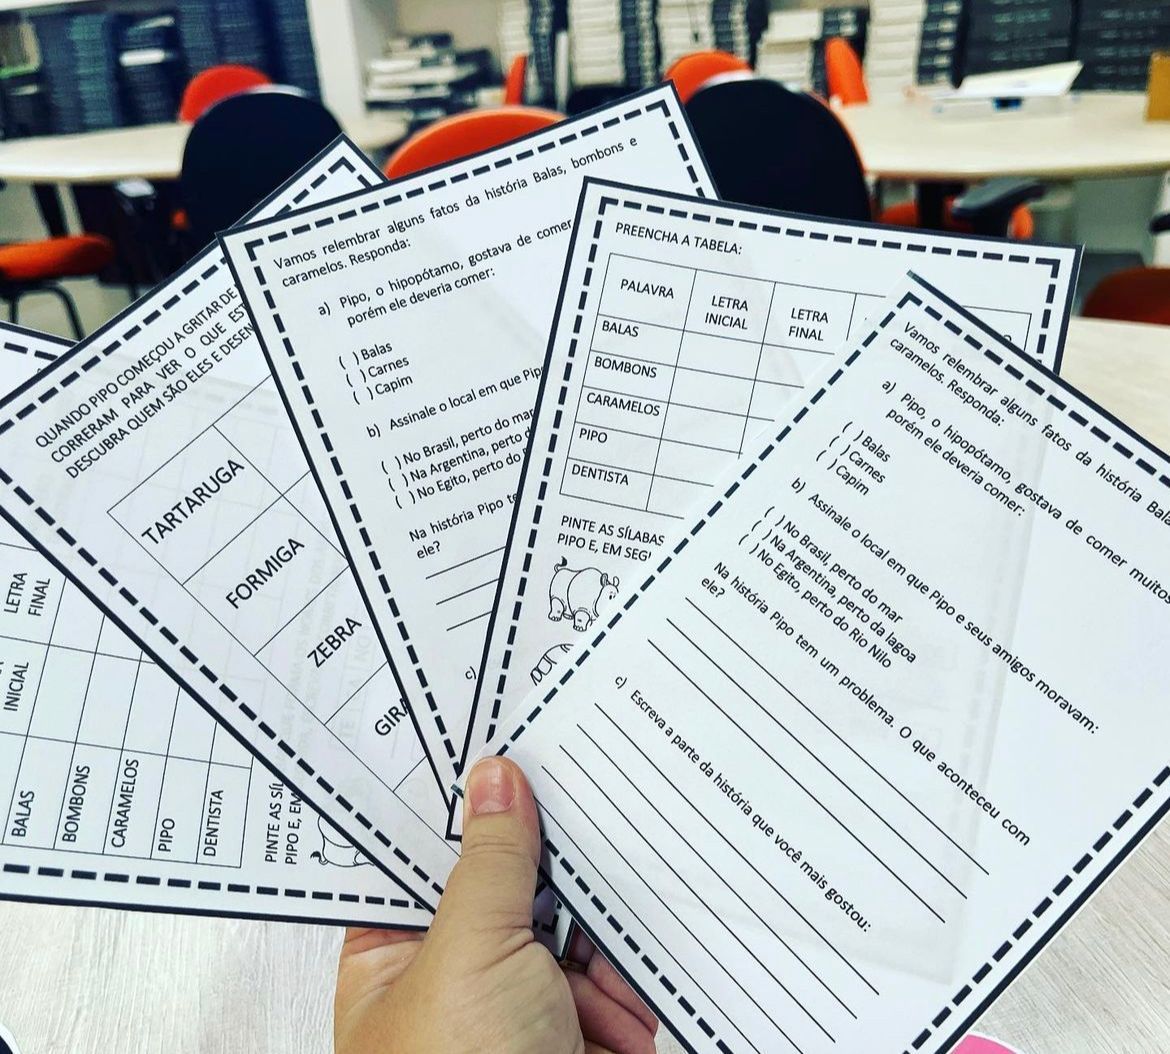 LETRA
FINAL
INICIAL
BALAS
BOMBONS
CARAMELOS
PIPO
DENTISTA
PINTE AS SÍL
PIPO E, EM
QUANDO PIPO COMEÇOU A GRITAR DE
CORRERAM PARA VER O QUE EST
DESCUBRA QUEM SÃO ELES E DESEN
TARTARUGA
FORMIGA
ZEBRA
GIRA
Vamos relembrar alguns fatos da história Balas, bombons e
caramelos. Responda:
a) Pipo, o hipopótamo, gostava de comer
porém ele deveria comer:
( ) Balas
( ) Carnes
( ) Capim
b) Assinale o local em que Pip
( ) No Brasil, perto do mar
( ) Na Argentina, perto d
( ) No Egito, perto do
Na história Pipo te
ele?
c)
PREENCHA A TABELA:
PALAVRA
LETRA
INICIAL
LETRA
FINAL
BALAS
BOMBONS
CARAMELOS
PIPO
DENTISTA
PINTE AS SÍLABAS
PIPO E, EM SEG
Vamos relembrar alguns fatos da história Bala
caramelos. Responda:
a) Pipo, o hipopótamo, gostava de comer muitos
porém ele deveria comer:
( ) Balas
( ) Carnes
( ) Capim
b) Assinale o local em que Pipo e seus amigos moravam:
( ) No Brasil, perto do mar
( ) Na Argentina, perto da lagoa
( ) No Egito, perto do Rio Nilo
Na história Pipo tem um problema. O que aconteceu com
ele?
c) Escreva a parte da história que você mais gostou: